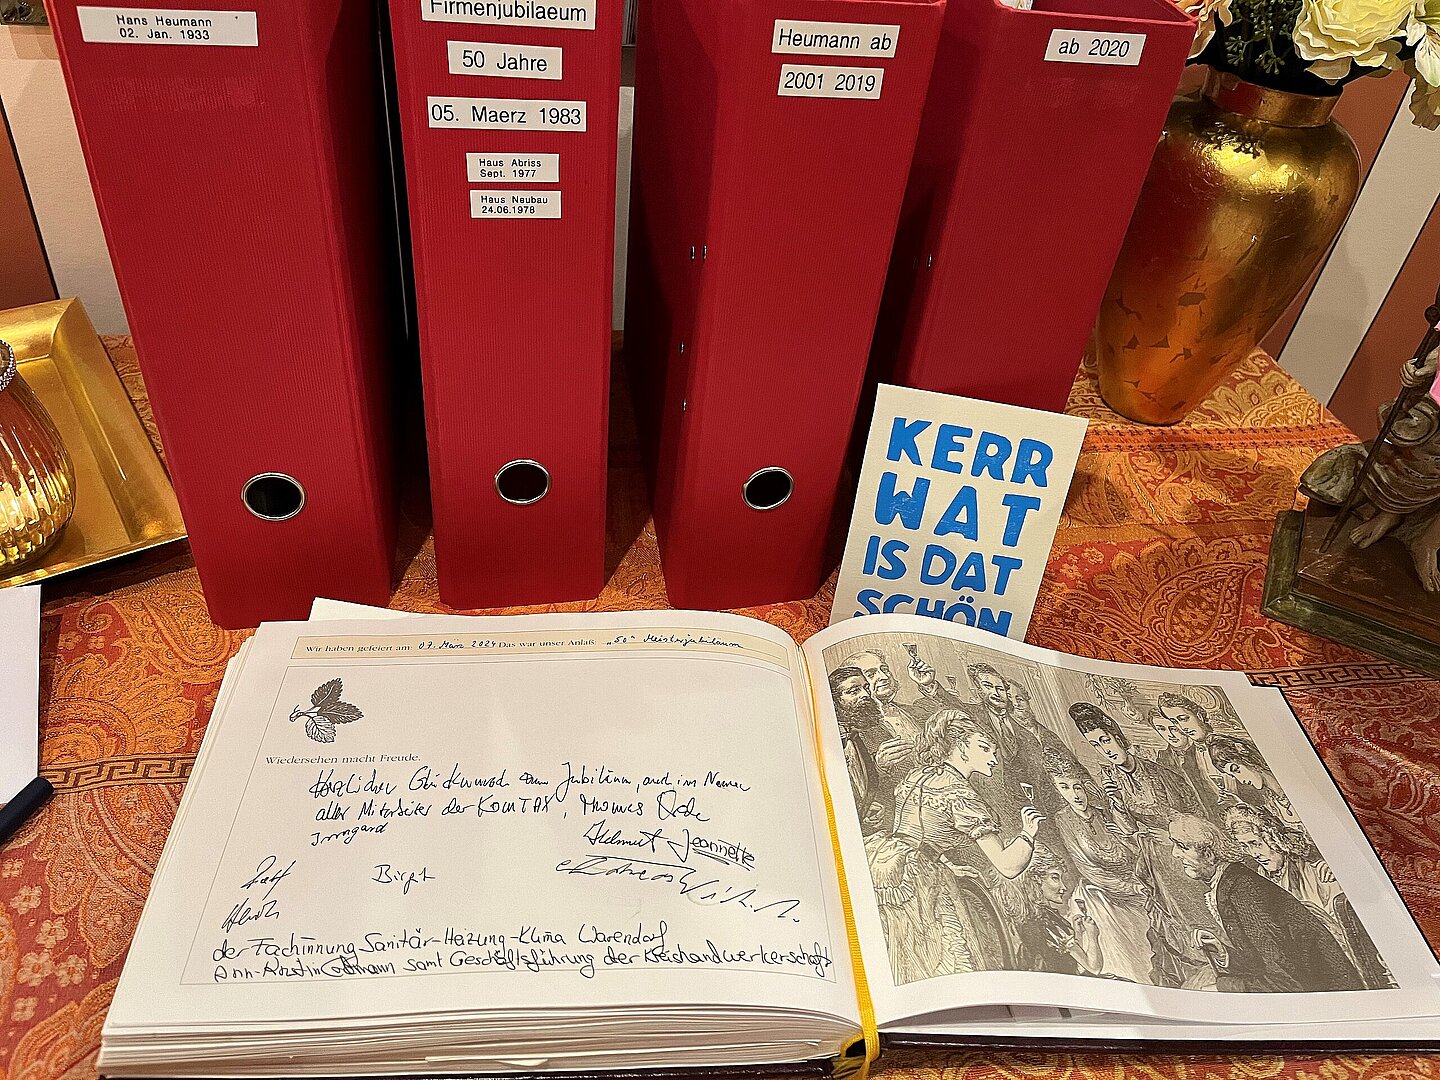 Hans Heumann
02. Jan. 1933
Firmenjubilaeum
50 Jahre
05. Maerz 1983
Haus Abriss
Sept. 1977
Haus Neubau
24.06.1978
Heumann ab
2001 2019
ab 2020
KERR
WAT
IS DAT
SCHÖN
Wir haben gefeiert am: 07. März 2024 Das war unser Anlaß: "50" Meisterjubiläum
Wiedersehen macht Freude.
Herzlichen Glückwunsch zum Jubiläum, auch im Namen
aller Mitarbeiter der KOMTAS, Thomas
Irmgard
Helmut Jeannette
Birgit
der Fachinnung Sanitär-Heizung-Klima Warendorf
Ann-Kristin samt Geschäftsführung der Kreishandwerkerschaft